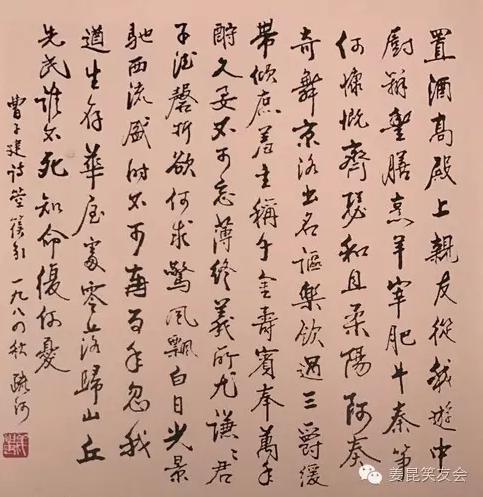 置酒高殿上親友從我遊中
廚辦豐膳烹羊宰肥牛秦箏
何慷慨齊瑟和且柔陽阿奏
奇舞京洛出名謳樂飲過三爵緩
帶傾庶羞主稱千金壽賓奉萬年
酬久要不可忘薄終義所尤謙々君
子德磬折欲何求驚風飄白日光景
馳西流盛時不可再百年忽我
遒生存華屋處零落歸山丘
先民誰不死知命復何憂
曹子建詩箜篌引 一九八四秋
姜昆笑友会